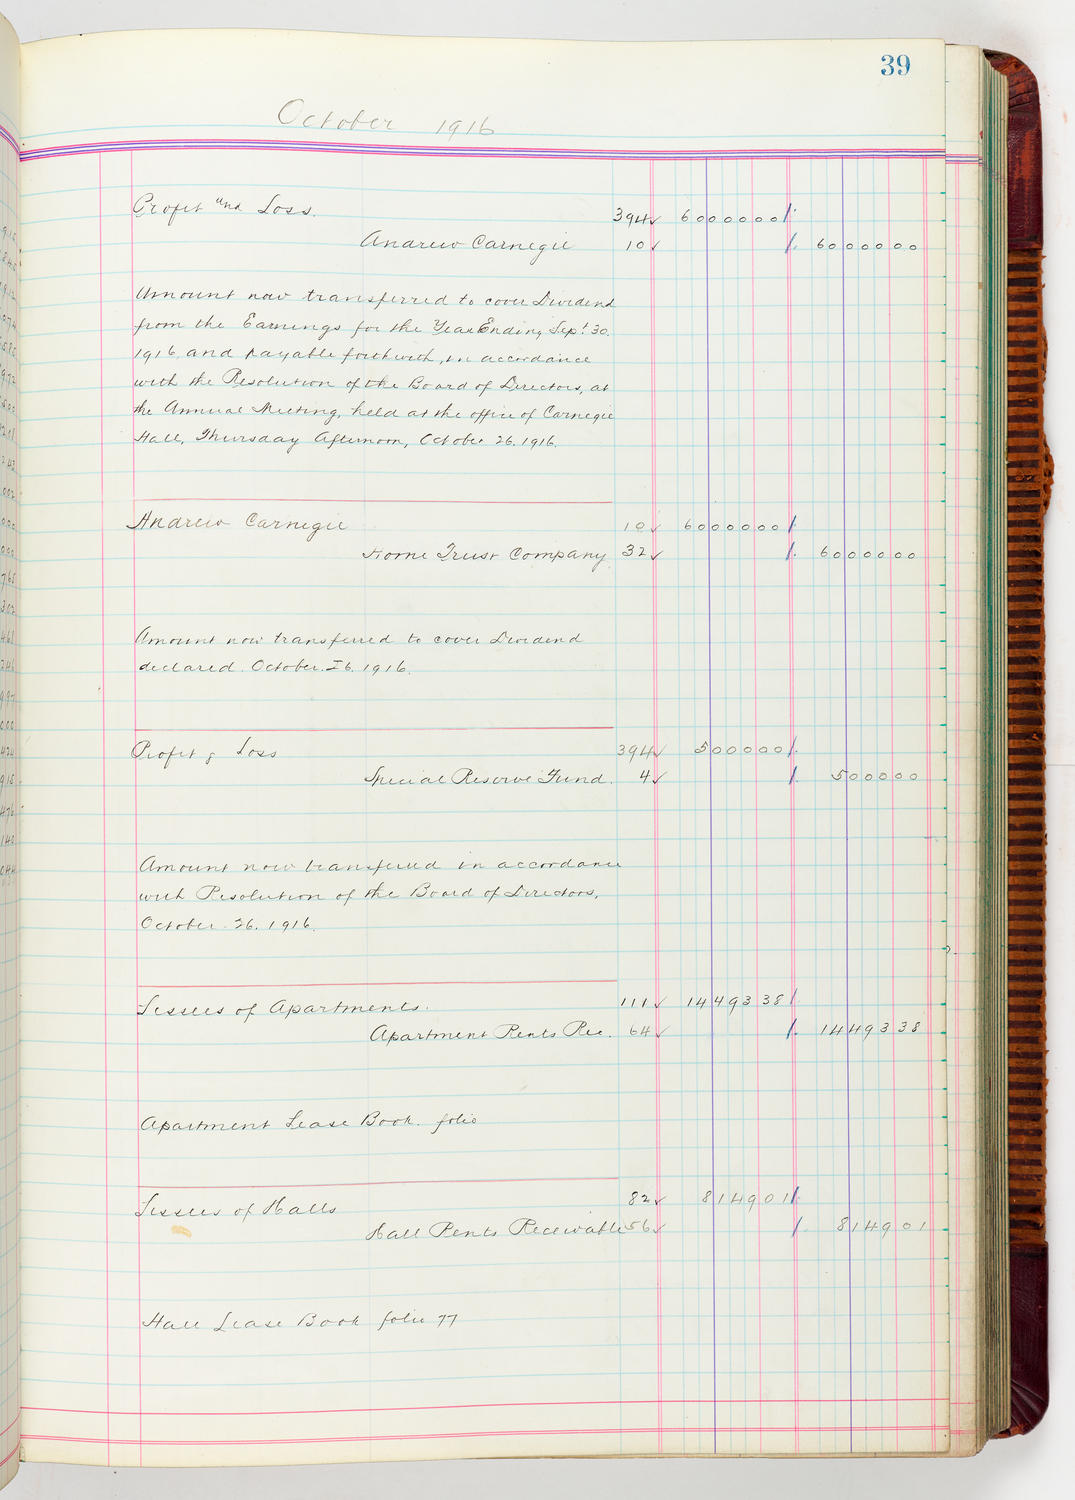 39
October 1916
Profit and Loss. 394✓ 6000000
Andrew Carnegie 10✓ 6000000
Amount now transferred to cover Dividend
from the Earnings for the Year Ending Sept. 30.
1916, and payable forthwith, in accordance
with the Resolution of the Board of Directors, at
the Annual Meeting, held at the office of Carnegie
Hall, Thursday Afternoon, October 26. 1916.
Andrew Carnegie 10✓ 6000000
Home Trust Company 32✓ 6000000
Amount now transferred to cover Dividend
declared. October. 26. 1916.
Profit & Loss 394✓ 500000
Special Reserve Fund. 4✓ 500000
Amount now transferred in accordance
with Resolution of the Board of Directors,
October. 26. 1916.
Lessees of Apartments. 111✓ 1449338
Apartment Rents Rec. 64✓ 1449338
Apartment Lease Book. folio
Lessees of Halls 82✓ 814901
Hall Rents Receivable 56✓ 814901
Hall Lease Book folio 77